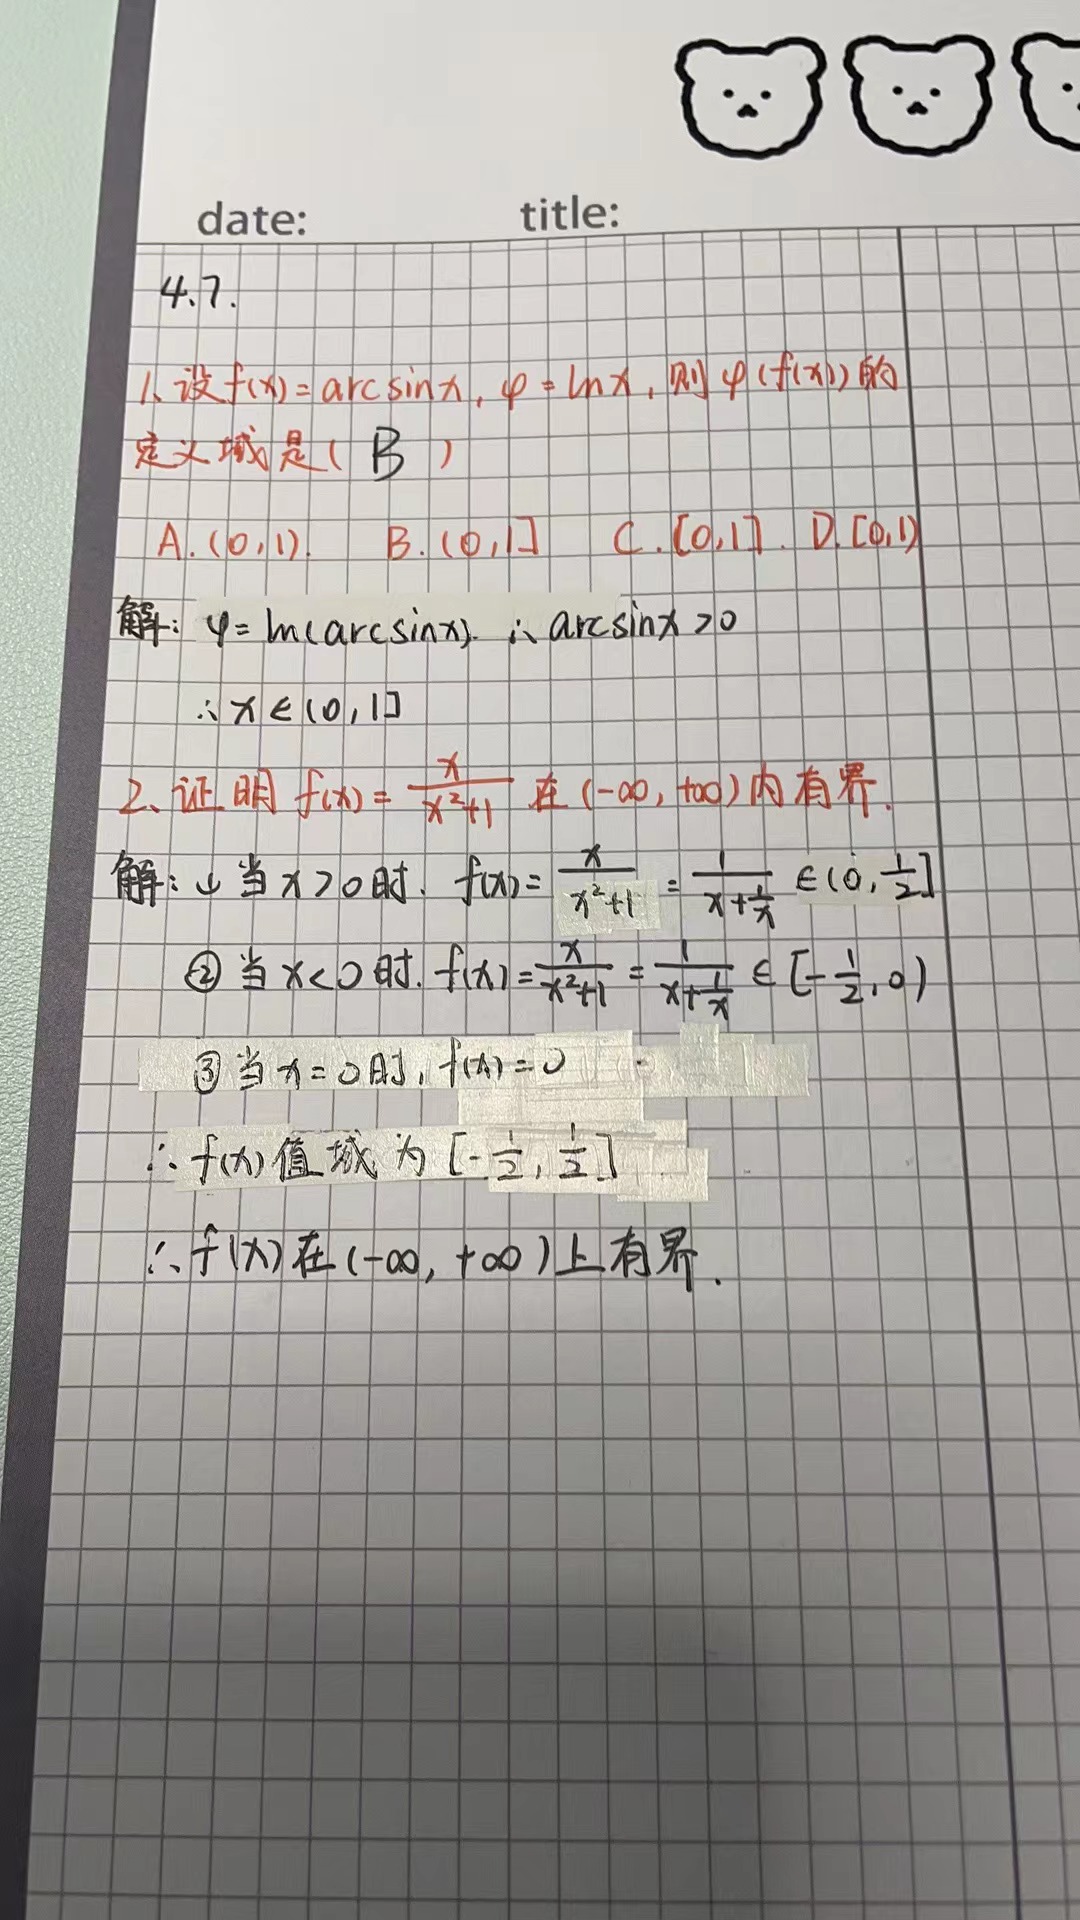 date: title:
4.7.
1、设f(x)=arcsinx, φ=lnx, 则φ(f(x))的
定义域是( B )
A.(0,1). B.(0,1] C.[0,1]. D.[0,1)
解: φ=ln(arcsinx). ∴arcsinx>0
∴x∈(0,1]
2、证明f(x)=x/(x²+1)在(-∞,+∞)内有界.
解: 当x>0时. f(x)=x/(x²+1)=1/(x+1/x)∈(0,1/2]
②当x<0时. f(x)=x/(x²+1)=1/(x+1/x)∈[-1/2,0)
③当x=0时, f(x)=0
∴f(x)值域为[-1/2,1/2]
∴f(x)在(-∞,+∞)上有界.